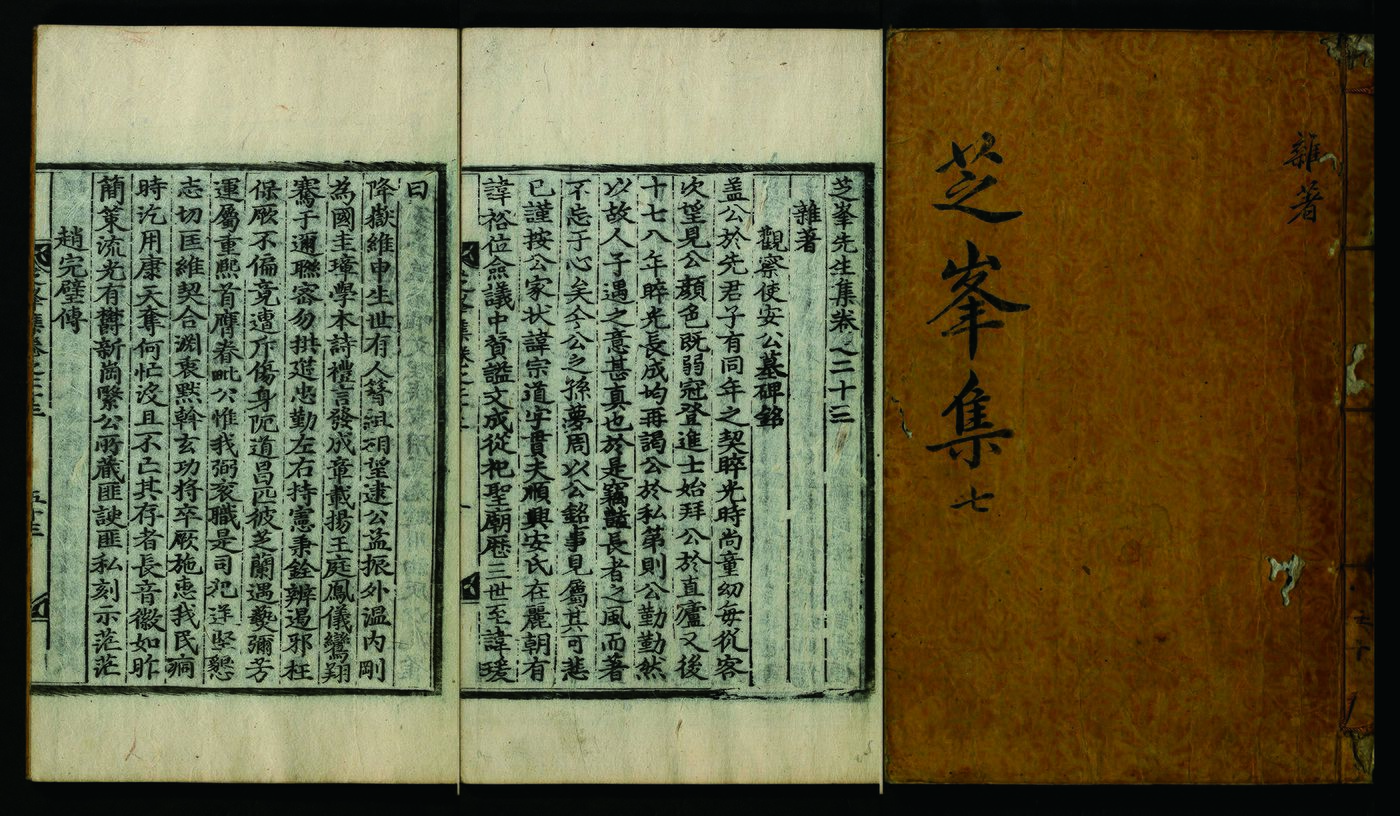 雜著
芝峯集 七
芝峯先生集卷之二十三
雜著
觀察使安公墓碑銘
盖公於先君子有同年之契睟光時尚童幼每從客
次望見公顔色旣弱冠登進士始拜公於直廬又後
十七八年睟光長成均再謁公於私第則公勤勤然
以故人子遇之意甚真也於是竊豔長者之風而著
不忘于心矣今公之孫夢周以公銘事見屬其可悲
已謹按公家状諱宗道字貫夫順興安氏在麗朝有
諱裕位僉議中贊謚文成從祀聖廟歷三世至諱瑗
曰
降嶽維申生世有人簪組碩望逮公益振外溫内剛
為國圭璋學本詩禮言發成章載揚王庭鳳儀鸞翔
騫子邇聯密勿拱道忠勤左右持憲秉銓辨遏邪枉
保厥不偏竟遭斤傷身阨道昌匹彼芝蘭遇爇彌芳
運屬重熙首膺眷毗公惟我弼衮職是司犯逆坚懇
志切匡維契合淵衷默斡玄功将卒厥施惠我民痌
時汔用康天奪何忙没且不亡其存者長音徽如昨
簡策流光有欝新崗繄公所藏匪諛匪私刻示茫茫
趙完璧傳